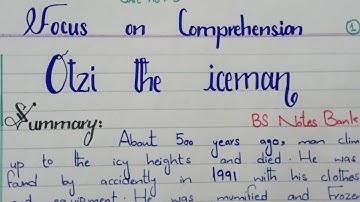 Focus on Comprehension
1
Otzi the iceman
Summary:
BS Notes Bank
About 500 years ago, man clim
up to the icy heights and died. He was
found by accidently in 1991 with his clothes
and equipment. He was mumified and Frozen